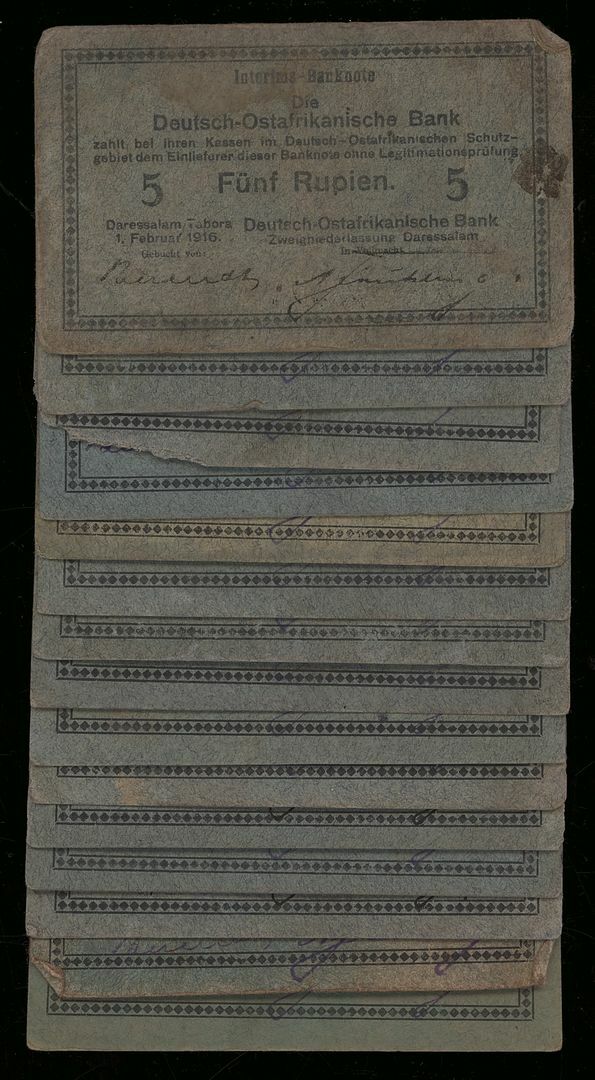 Interims-Banknote
Die
Deutsch-Ostafrikanische Bank
zahlt bei ihren Kassen im Deutsch-Ostafrikanischen Schutz-
gebiet dem Einlieferer dieser Banknote ohne Legitimationsprüfung
5 Fünf Rupien. 5
Daressalam Tabora Deutsch-Ostafrikanische Bank
1. Februar 1916. Zweigniederlassung Daressalam
Gebucht von: In Vollmacht
Berendt